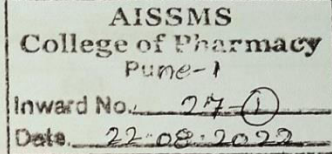 AISSMS
College of Pharmacy
Pune-1
Inward No. 27-1
Date. 22-08-2022